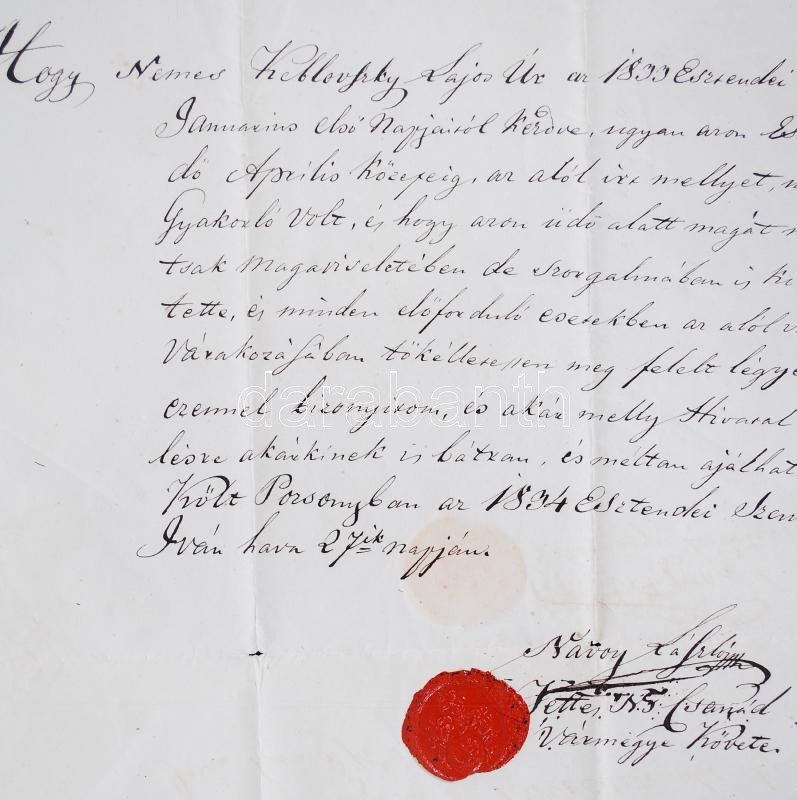 Hogy Nemes Keblovszky Lajos Úr az 1833 Esztendei
Januarius első Napjaitól kezdve, ugyan azon Es
dő Április közepeig, az alól irt mellyet,
Gyakorló volt, és hogy azon üdő alatt magát n
tsak magaviseletében de szorgalmában is ki
tette, és minden előforduló esetekben az alól
Várakozásában tökélletessen meg felelt légye
ezennel bizonyitom, és akár melly Hivatal
lésre akárkinek is bátran, és méltan ajálhat
Költ Posonyban az 1834 Esztendei Szen
Iván hava 27ik napján.
darabanth
Návoy László
Tettes Ns Csanád
Vármegye Követe.